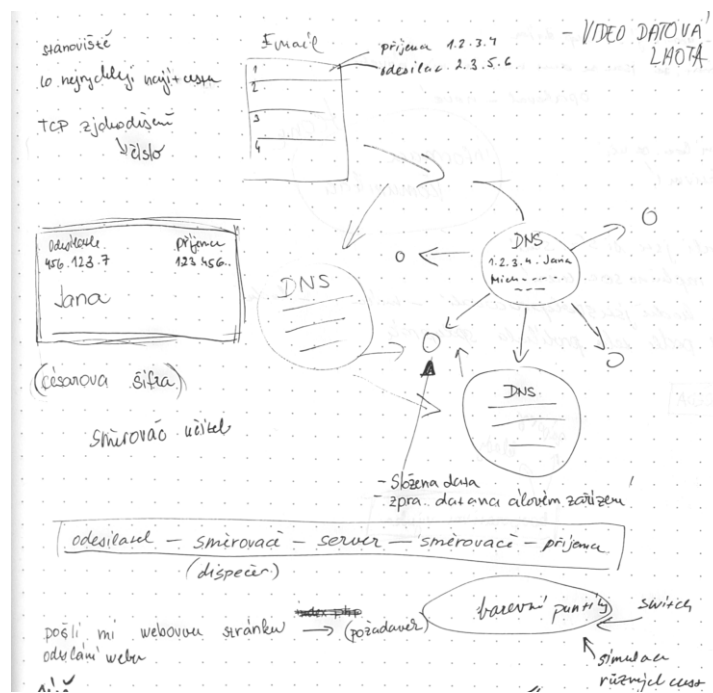 - VIDEO DATOVÁ
LHOTA
stanoviště
co nejrychleji najít cestu
TCP zjednodušení
číslo
Email
příjemce 1.2.3.4
odesílac 2.3.5.6
1
2
3
4
Odesílatel
456.123.7
příjemce
123 456..
Jana
(césarova šifra)
Směrovač učitel
DNS
DNS
1.2.3.4. Jana
Mich
DNS
- Složena data
- zpra. datana cílovém zařízení
odesílatel - směrovací - server - směrovací - příjemce
(dispečer)
pošli mi webovou stránku → (požadavek)
odeslání webu
index.php
barevní puntíky
switch
simulace
různých cest